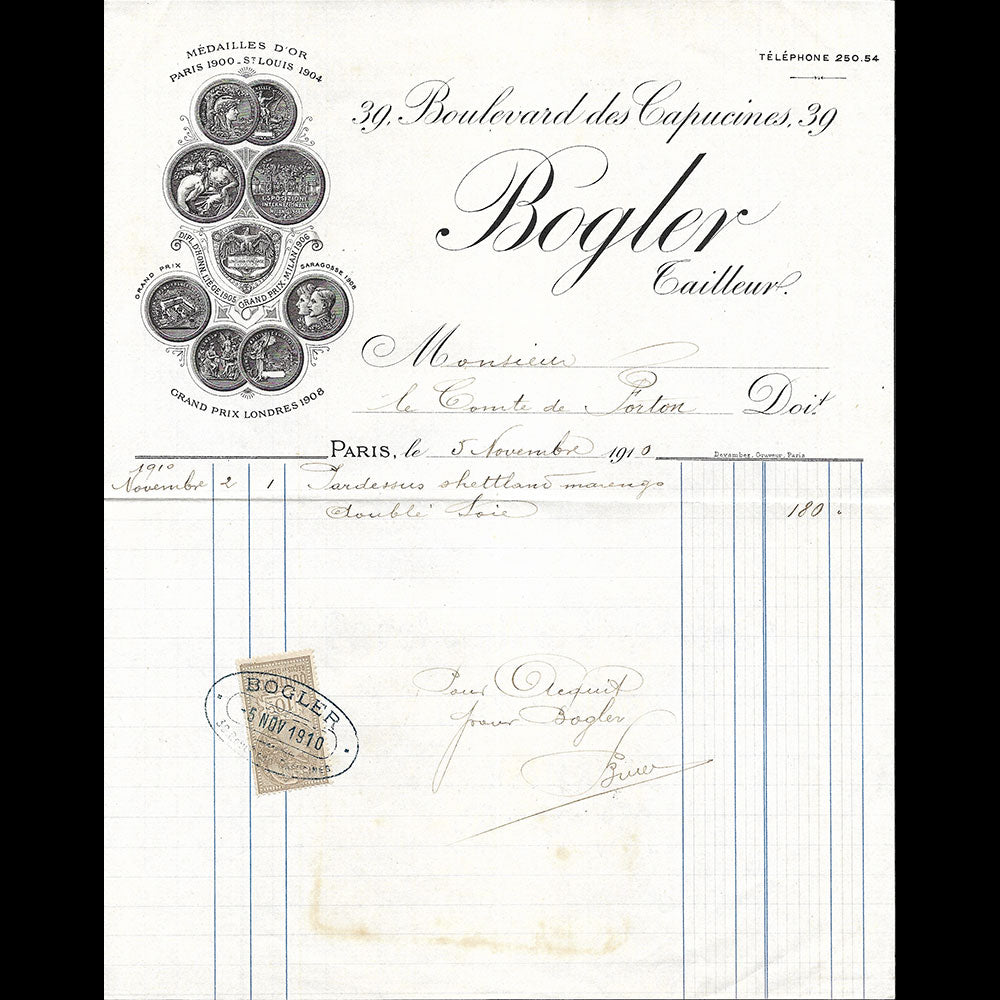 MÉDAILLES D'OR
PARIS 1900_ST LOUIS 1904
ESPOSIZIONE
INTERNAZIONALE
DIPL. D'HONN. LIÉGE 1905
GRAND PRIX MILAN 1906
GRAND PRIX
SARAGOSSE 1908
GRAND PRIX LONDRES 1908
TÉLÉPHONE 250.54
39, Boulevard des Capucines, 39
Bogler
Tailleur.
Monsieur
le Comte de Forton Doit
PARIS, le 5 Novembre 1910
Devambez, Graveur, Paris
1910
Novembre 2 1 Pardessus shettland marengo
doublé Soie 180 "
Pour Acquit
pour Bogler
BOGLER
-5 NOV 1910